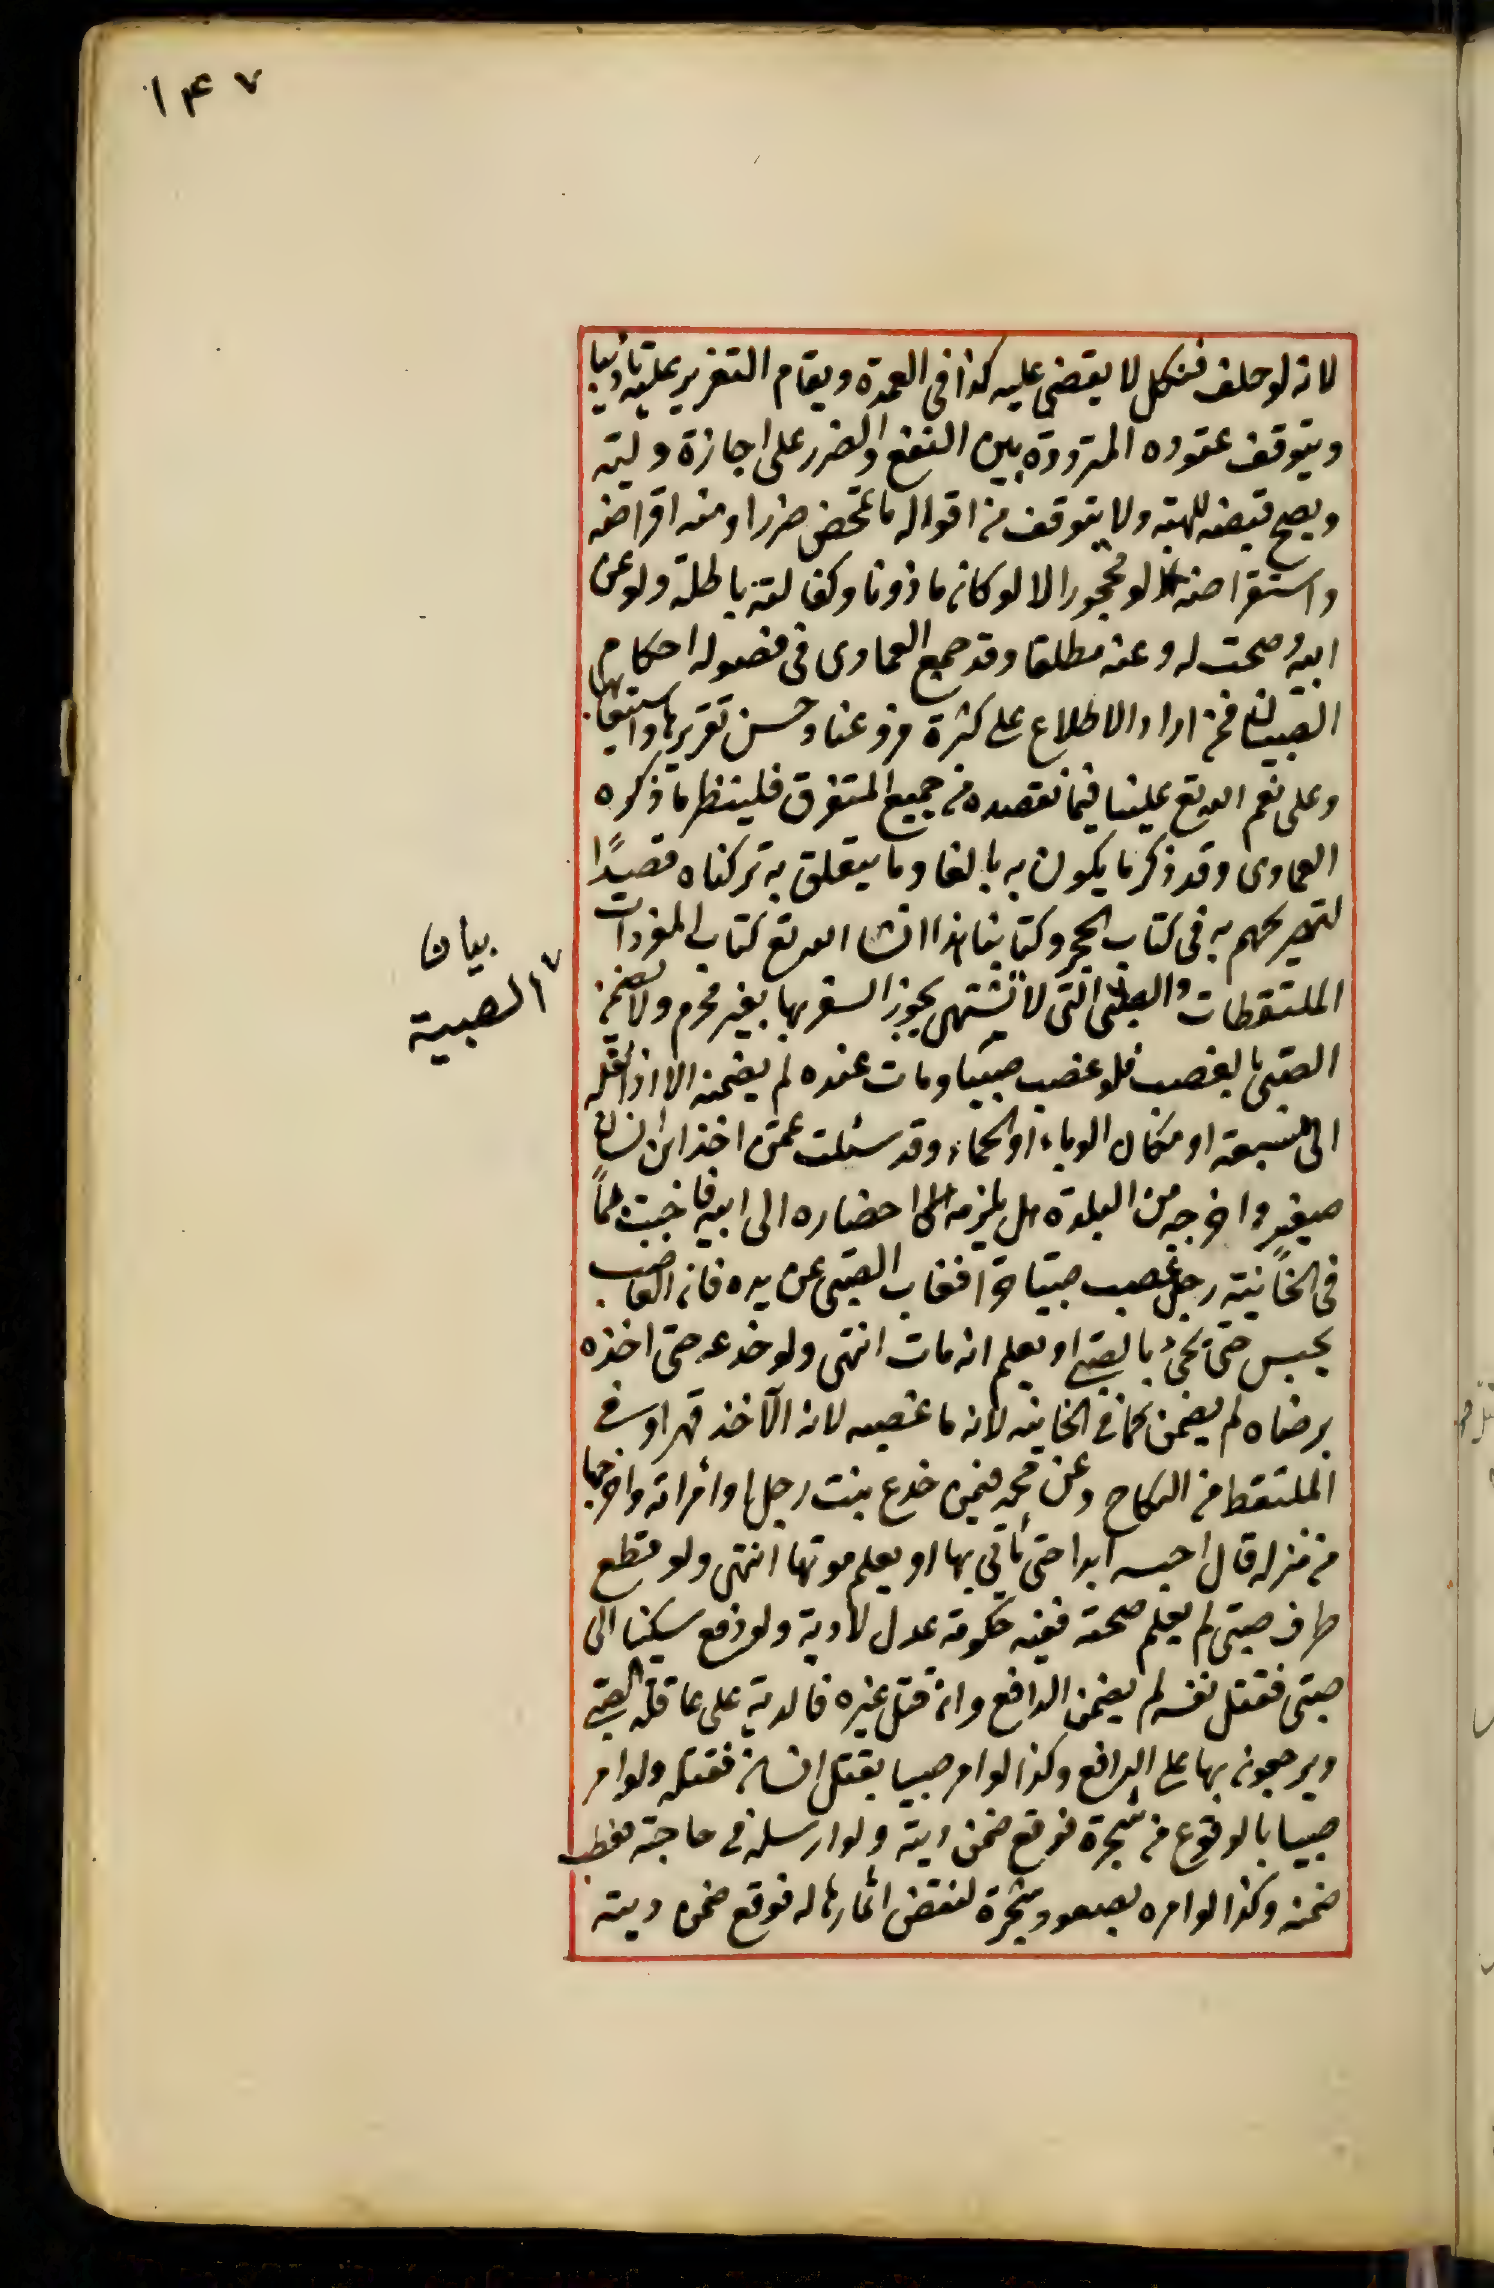 ١٤٧
لانه لو حلف فنكل لا يقضى عليه كذا فى العمدة ويقام التعزير عليه تأديبا
ويتوقف عقوده المترددة بين النفع والضرر على اجازة وليه
ويصح قبضه للهبة ولا يتوقف من اقواله ما تمحض ضررا ومنه اقراضه
واستقراضه لو محجورا الا لو كان ماذونا وكفالته باطلة ولو عن
ابيه وصحت له وعنه مطلقا وقد جمع العمادى فى فصوله احكام
الصبيان فمن اراد الاطلاع على كثرة فروعنا وحسن تقريرها واستيعابها
وعلى نعم الله تع علينا فيما نقصده من جميع المتفرق فلينظر ما ذكره
العمادى وقد ذكر ما يكون به بالغا وما يتعلق به تركناه قصدًا
لتصريحهم به فى كتاب الحجر وكتابنا هذا انشا الله تع كتاب المفردات
الملتقطات والصبية التى لا تشتهى يجوز السفر بها بغير محرم ولا يضمن
الصبى بالغصب فلو غصب صبيا ومات عنده لم يضمنه الا اذا نقله
الى مسبعة او مكان الوباء او الحماء وقد سئلت عمن اخذ ابن انسان
صغير واخرجه من البلدة هل يلزمه احضاره الى ابيه فاجبت لما
فى الخانية رجل غصب صبيا حرا فغاب الصبى عن يده فان الغاصب
يحبس حتى يجئ بالصبى او يعلم انه مات انتهى ولو خدعه حتى اخذه
برضاه لم يضمن كما فى الخانية لانه ما غصبه لانه الآخذ قهرا وفى
الملتقط من النكاح وعن محمد فيمن خدع بنت رجل او امرأته واخرجها
من منزله قال احبسه ابدا حتى يأتى بها او يعلم موتها انتهى ولو قطع
طرف صبى لم يعلم صحته ففيه حكومة عدل لا دية ولو دفع سكينا الى
صبى فقتل نفسه لم يضمن الدافع وان قتل غيره فالدية على عاقلة الصبى
ويرجعون بها على الدافع وكذا لو امر صبيا بقتل انسان فقتله ولو امر
صبيا بالوقوع من شجرة فوقع ضمن ديته ولو ارسله فى حاجة فعطب
ضمنه وكذا لو امره بصعود شجرة لنفض اثمارها له فوقع ضمن ديته
بيان
الصبية